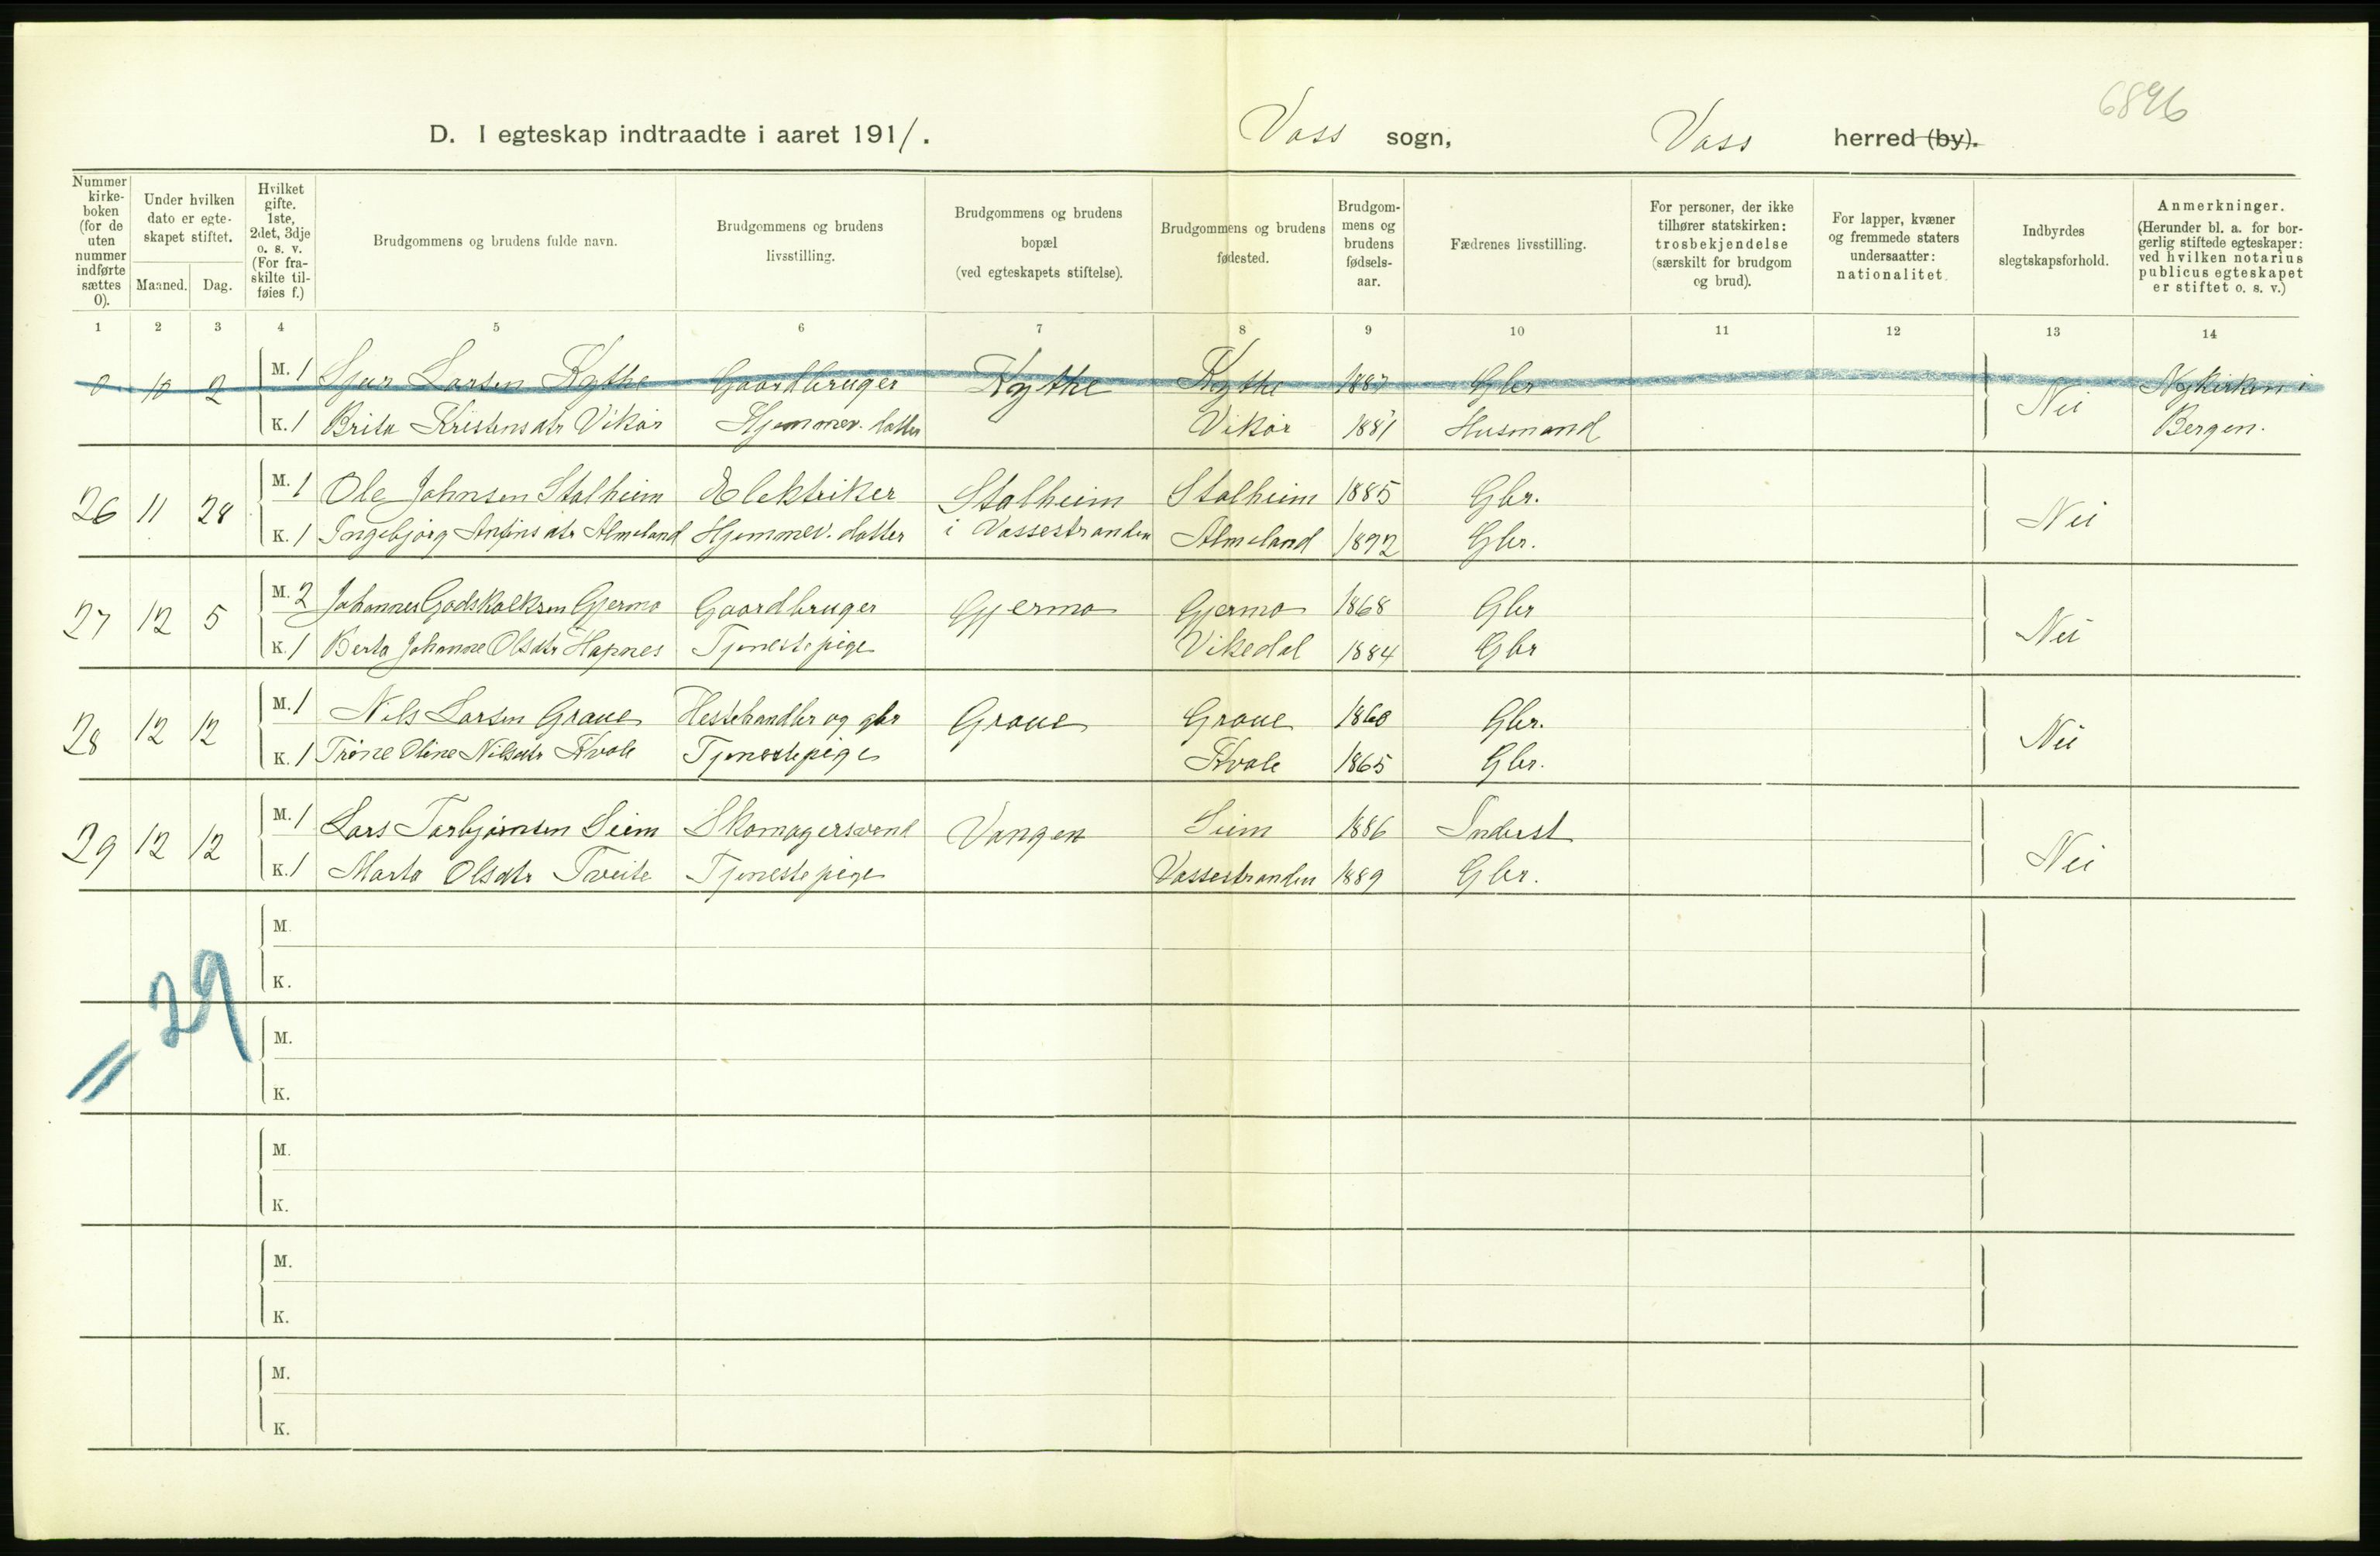 6896
D. I egteskap indtraadte i aaret 1911. Voss sogn, Voss herred (by).
Nummer kirke-boken (for de uten nummer indførte sættes 0).
Under hvilken dato er egte-skapet stiftet.
Maaned. Dag.
Hvilket gifte. 1ste, 2det, 3dje o. s. v. (For fra-skilte til-føies f.)
Brudgommens og brudens fulde navn.
Brudgommens og brudens livsstilling.
Brudgommens og brudens bopæl (ved egteskapets stiftelse).
Brudgommens og brudens fødested.
Brudgom-mens og brudens fødsels-aar.
Fædrenes livsstilling.
For personer, der ikke tilhører statskirken: trosbekjendelse (særskilt for brudgom og brud).
For lapper, kvæner og fremmede staters undersaatter: nationalitet.
Indbyrdes slegtskapsforhold.
Anmerkninger. (Herunder bl. a. for bor-gerlig stiftede egteskaper: ved hvilken notarius publicus egteskapet er stiftet o. s. v.)
1 2 3 4 5 6 7 8 9 10 11 12 13 14
0 10 2 M. 1 Sjur Larsen Kythe Gaardbruger Kythe Kythe 1887 Gbr Nei Nykirken i
K. 1 Brita Kristensdtr Vikør Hjemmev. datter Vikør 1881 Husmand Bergen.
26 11 28 M. 1 Ole Johnsen Stalheim Elektriker Stalheim Stalheim 1885 Gbr. Nei
K. 1 Ingebjørg Anfinsdtr Almeland Hjemmev. datter i Vossestranden Almeland 1892 Gbr.
27 12 5 M. 2 Johannes Godskalksen Gjermo Gaardbruger Gjermo Gjermo 1868 Gbr Nei
K. 1 Berta Johanne Olsdtr Hapnes Tjenestepige Vikedal 1884 Gbr
28 12 12 M. 1 Nils Larsen Graue Hestehandler og gbr Graue Graue 1860 Gbr. Nei
K. 1 Trine Oline Nilsdtr Kvale Tjenestepige Kvale 1865 Gbr.
29 12 12 M. 1 Lars Torbjørnsen Seim Skomagersvend Vangen Seim 1886 Inderst Nei
K. 1 Marta Olsdtr Tveite Tjenestepige Vossestranden 1889 Gbr.
M.
K.
29
M.
K.
M.
K.
M.
K.
M.
K.